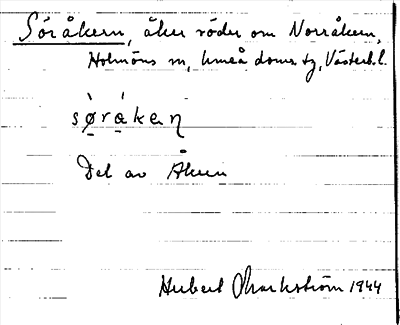 Söråkern, åker söder om Norråkern,
Holmöns sn, Umeå doms tg, Västerb. l.
sø̠̀rá̠ken̡
Del av Åkern
Hubert Markström 1944